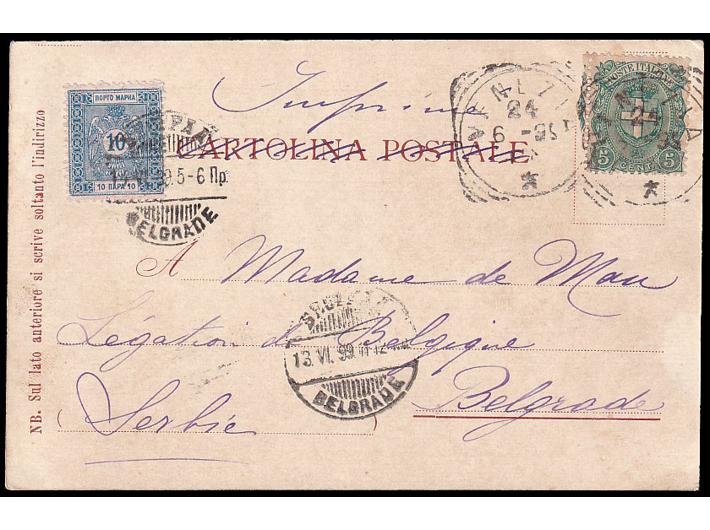 ПОРТО МАРКА
10
10 ПАРА 10
POSTE ITALIANE
5 5
VENEZIA
24
6 - 99
Imprimé
CARTOLINA POSTALE
BELGRADE
A Madame de Man
Légation de Belgique
Belgrade
Serbie
13 VI. 99
BELGRADE
NB. Sul lato anteriore si scrive soltanto l'indirizzo